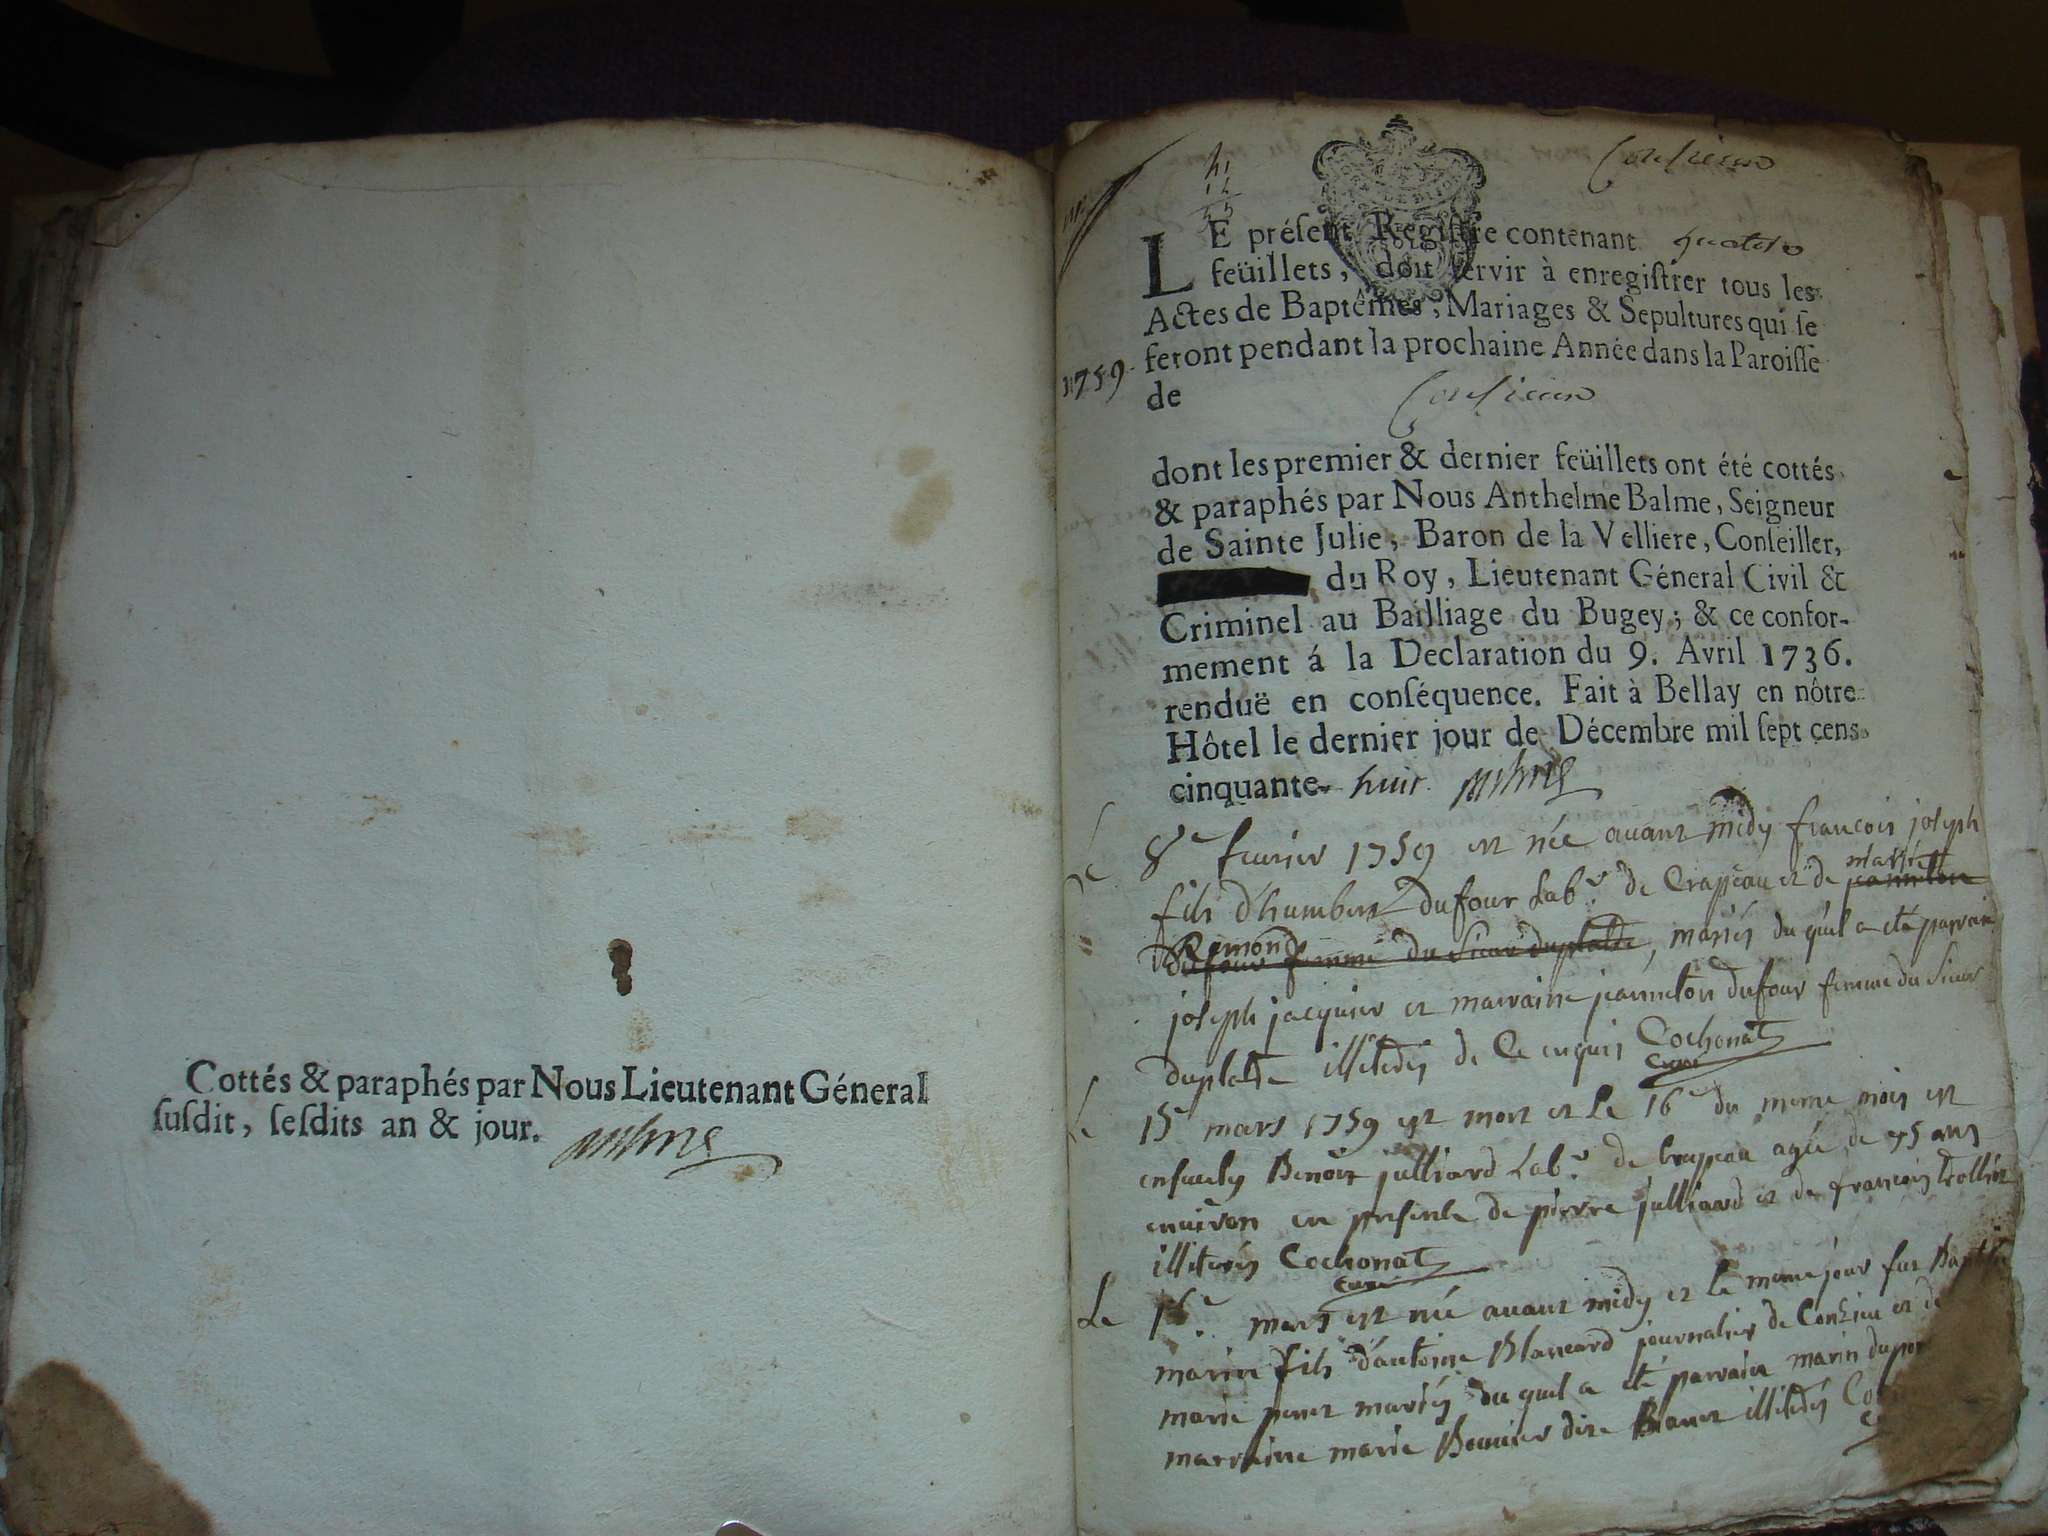 Cottés & paraphés par Nous Lieutenant Géneral
ſuſdit, leſdits an & jour.
41
14
Conſieux
LE préſent Regiſtre contenant quatre
feüillets, doit ſervir à enregiſtrer tous les
Actes de Baptêmes, Mariages & Sepultures qui ſe
feront pendant la prochaine Année dans la Paroiſſe
1759
de Conſieux
dont les premier & dernier feüillets ont été cottés
& paraphés par Nous Anthelme Balme, Seigneur
de Sainte Julie, Baron de la Velliere, Conſeiller,
du Roy, Lieutenant Géneral Civil &
Criminel au Bailliage du Bugey; & ce confor-
mement á la Declaration du 9. Avril 1736.
renduë en conſéquence. Fait à Bellay en nôtre
Hôtel le dernier jour de Décembre mil ſept cens
cinquante- huit
Le 8e feurier 1759 est née auant midy francois joseph
fils d'humbert dufour Labr. de Crapeau et de marie jeanneton
Remond dufour femme du Sieur duplatre, mariés du quel a eté parrain
joseph jacquier et marraine jeanneton dufour femme du Sieur
duplatre illiterés de ce enquis Cochonat
Curé
Le 15e mars 1759 est mort et Le 16e du meme mois est
enseuely Benoit julliard Labr. de Crapeau agé de 75 ans
enuiron en presence de pierre julliard et de francois trollier
illiterés Cochonat
Curé
Le 16e. mars est née auant midy et le meme jour fut Baptisé
marin fils d'antoine Blancard journalier de Conzieu et de
marie perret mariés du quel a eté parrain marin dupor
marraine marie Bonnier dite Branet illiterés Co